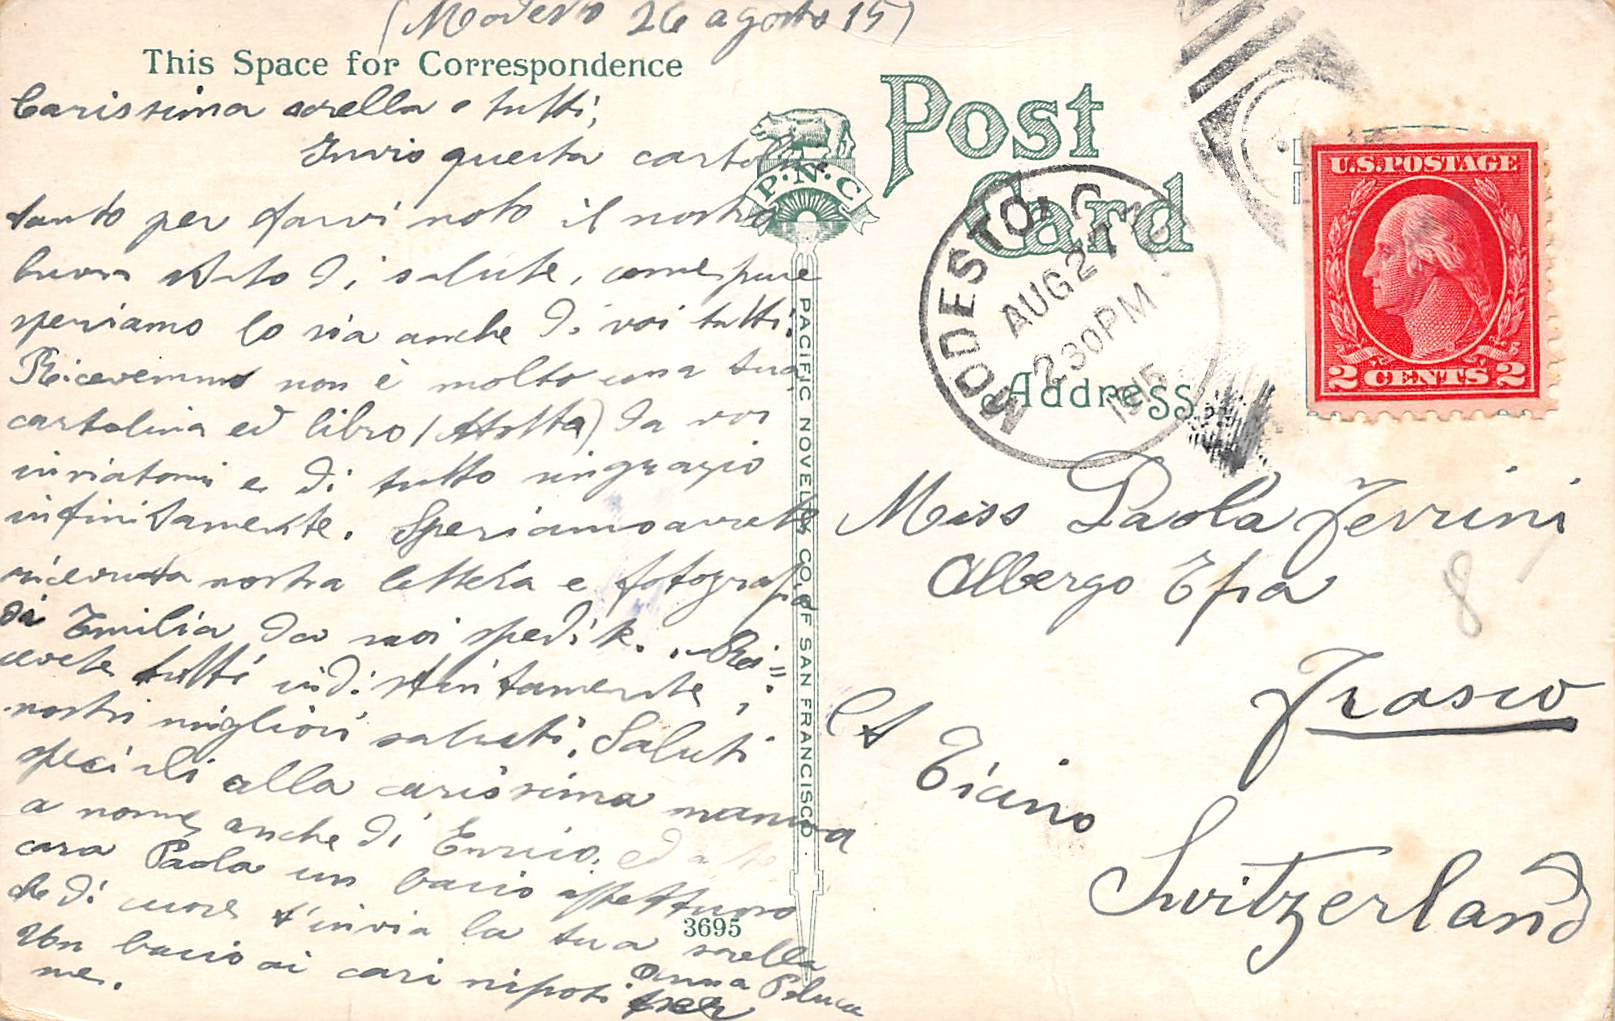 (Modesto 26 agosto 15)
This Space for Correspondence
Carissima sorella e tutti,
Invio questa cartolina
tanto per farvi noto il nostro
buon stato di salute, come pure
speriamo lo sia anche di voi tutti.
Ricevemmo non è molto una tua
cartolina ed libro ( ) da voi
inviatomi e di tutto ringrazio
infinitamente. Speriamo avrete
ricevuta nostra lettera e fotografia
di Emilia da noi spedite. Ri=
cevete tutti indistintamente,
nostri migliori saluti. Saluti
speciali alla carissima mamma
a nome anche di Enrico. ed a te
cara Paola un bacio affettuoso
che di cuore t'invia la tua sorella
Anna
Un bacio ai cari nipoti per
me.
P.N.C
PACIFIC NOVELTY CO. OF SAN FRANCISCO
3695
Post
Card
MODESTO, CAL
AUG 27
2 30 PM
1915
U.S. POSTAGE
2 CENTS 2
Address
Miss Paola Ferrini
Albergo Efra
Frasco
Ct Ticino
Switzerland
8